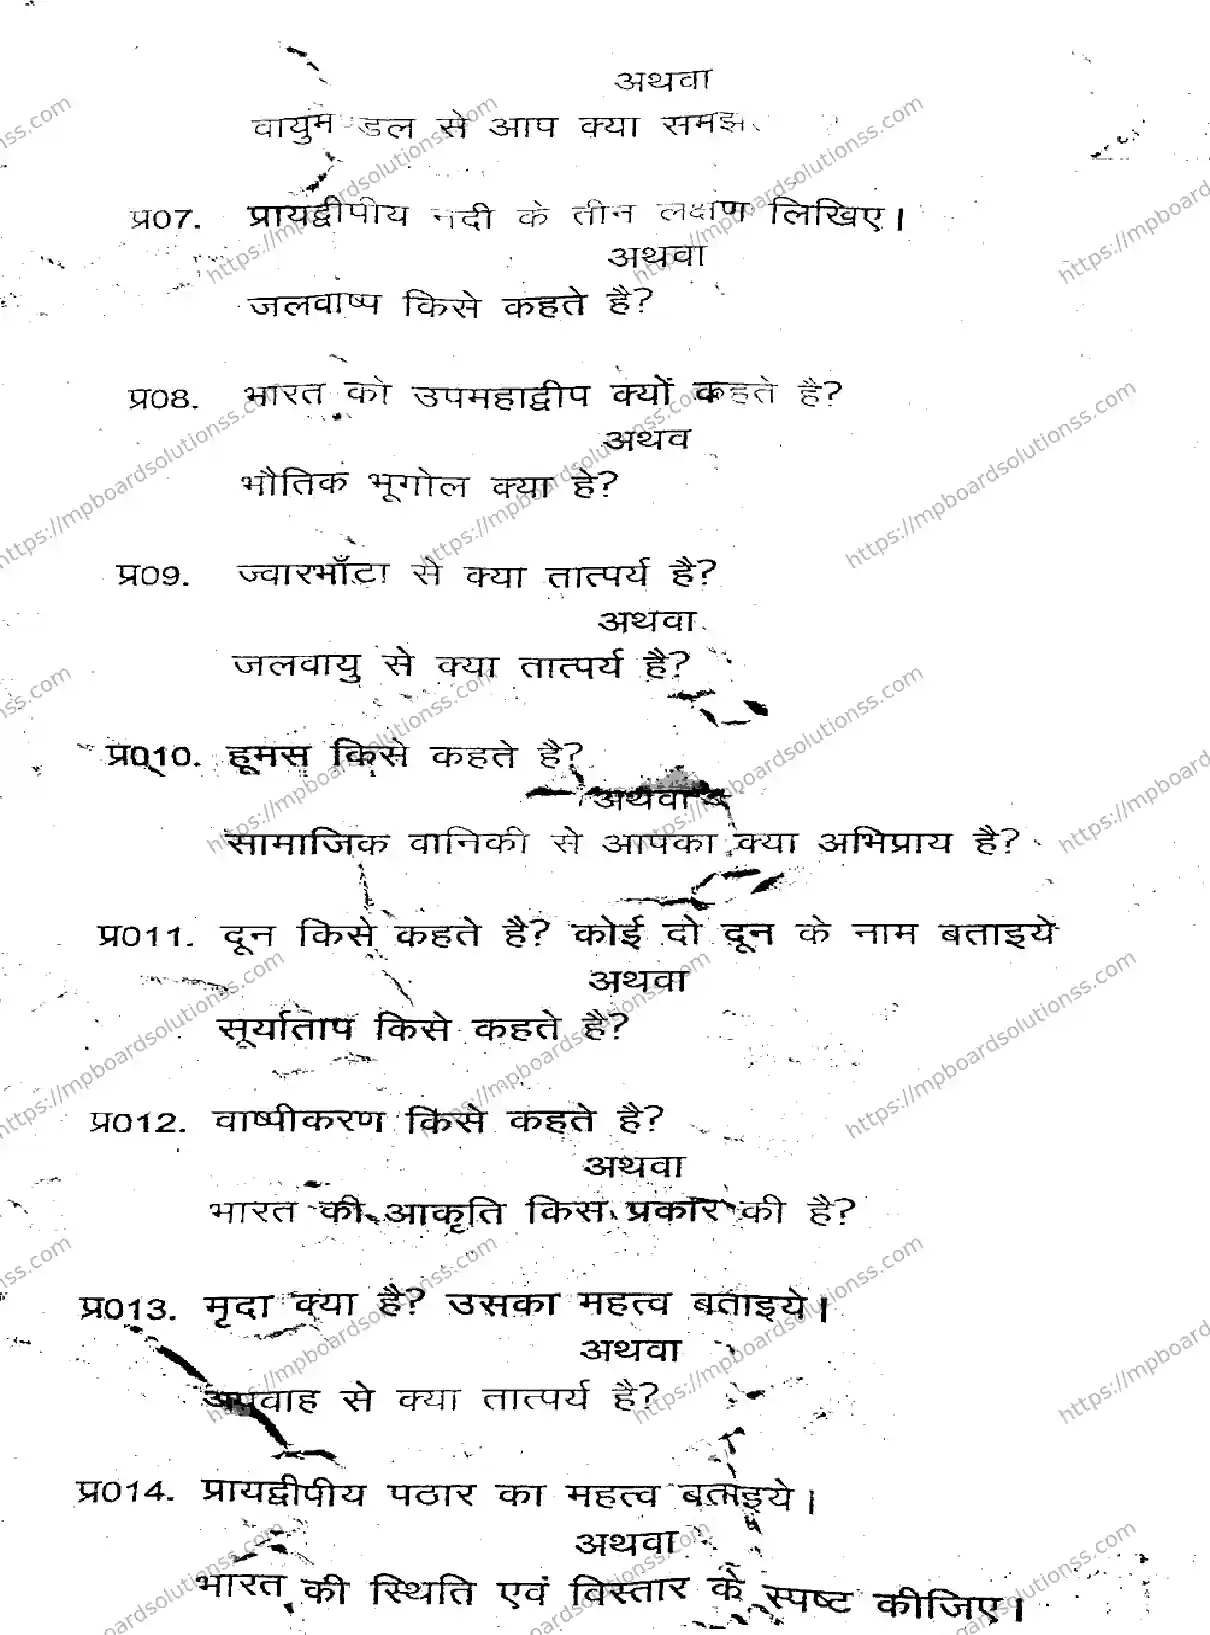 अथवा
वायुमण्डल से आप क्या समझ
प्र07. प्रायद्वीपीय नदी के तीन लक्षण लिखिए।
अथवा
जलवाष्प किसे कहते है?
प्र08. भारत को उपमहाद्वीप क्यों कहते है?
अथव
भौतिक भूगोल क्या है?
प्र09. ज्वारभाँटा से क्या तात्पर्य है?
अथवा
जलवायु से क्या तात्पर्य है?
प्र010. हूमस किसे कहते है?
अथवा
सामाजिक वानिकी से आपका क्या अभिप्राय है?
प्र011. दून किसे कहते है? कोई दो दून के नाम बताइये
अथवा
सूर्याताप किसे कहते है?
प्र012. वाष्पीकरण किसे कहते है?
अथवा
भारत की आकृति किस प्रकार की है?
प्र013. मृदा क्या है? उसका महत्व बताइये।
अथवा
अपवाह से क्या तात्पर्य है?
प्र014. प्रायद्वीपीय पठार का महत्व बताइये।
अथवा
भारत की स्थिति एवं विस्तार के स्पष्ट कीजिए।
https://mpboardsolutionss.com